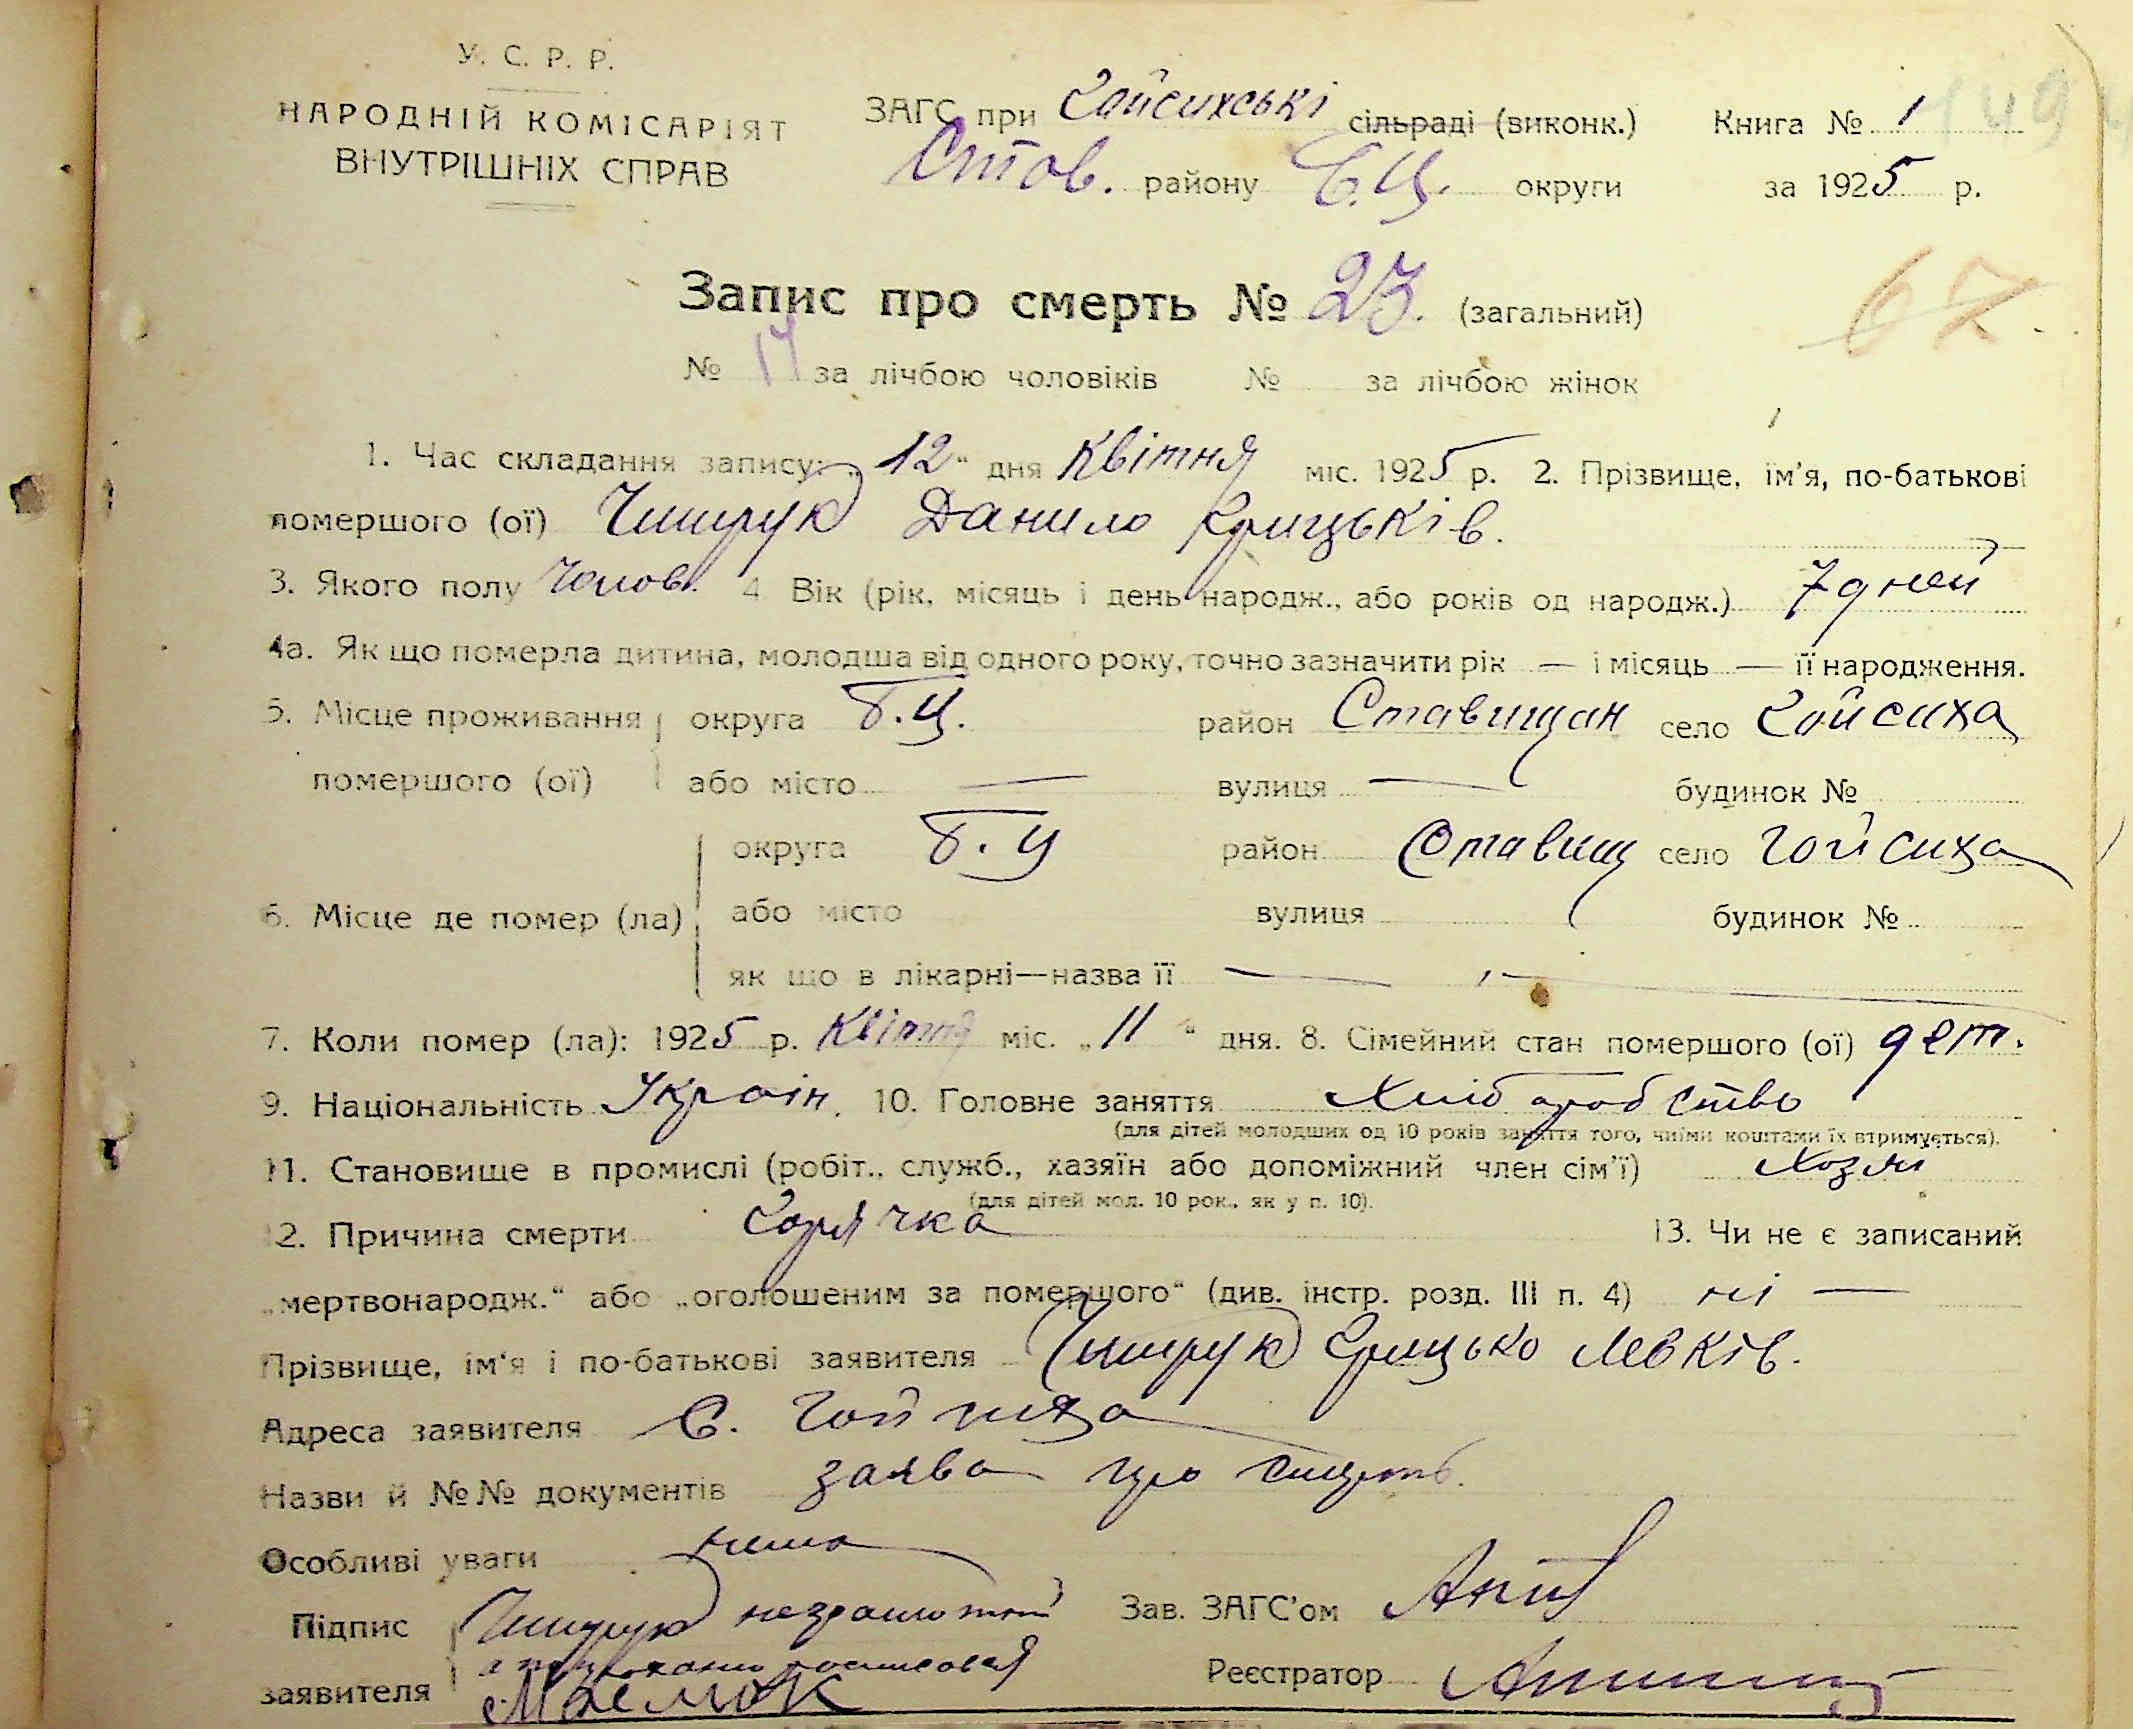 У. С. Р. Р.
НАРОДНІЙ КОМІСАРІЯТ
ВНУТРІШНІХ СПРАВ
ЗАГС при Гойсихські сільраді (виконк.)
Став. району Б.Ц. округи
Книга № 1
за 1925 р.
149
67
Запис про смерть № 23. (загальний)
№ 14 за лічбою чоловіків № за лічбою жінок
1. Час складання запису: „12“ дня Квітня міс. 1925 р. 2. Прізвище, ім'я, по-батькові
помершого (ої) Чишрук Данило Грицьків.
3. Якого полу Чолов. 4 Вік (рік, місяць і день народж., або років од народж.) 7 дней
4а. Як що померла дитина, молодша від одного року, точно зазначити рік — і місяць — її народження.
5. Місце проживання округа Б.Ц. район Ставищан село Гойсиха
помершого (ої) або місто — вулиця — будинок №
округа Б.Ц район Ставищ село Гойсиха
6. Місце де помер (ла) або місто вулиця будинок №
як що в лікарні—назва її —
7. Коли помер (ла): 1925 р. Квітня міс. „11“ дня. 8. Сімейний стан помершого (ої) дет.
9. Національність Україн. 10. Головне заняття Хліборобство
(для дітей молодших од 10 років заняття того, чиїми коштами їх втримується).
11. Становище в промислі (робіт., служб., хазяїн або допоміжний член сім'ї) Хозяїн
(для дітей мол. 10 рок., як у п. 10).
12. Причина смерти Горячка 13. Чи не є записаний
„мертвонародж.“ або „оголошеним за помершого“ (див. інстр. розд. III п. 4) ні —
Прізвище, ім'я і по-батькові заявителя Чишрук Грицько Левків.
Адреса заявителя С. Гойсиха
Назви й №№ документів заява про смерть.
Особливі уваги нема
Підпис Чишрук неграмотній Зав. ЗАГС'ом
заявителя Реєстратор